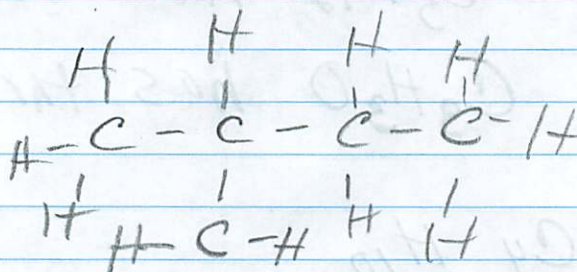 H H H H
H - C - C - C - C - H
H H - C - H H H